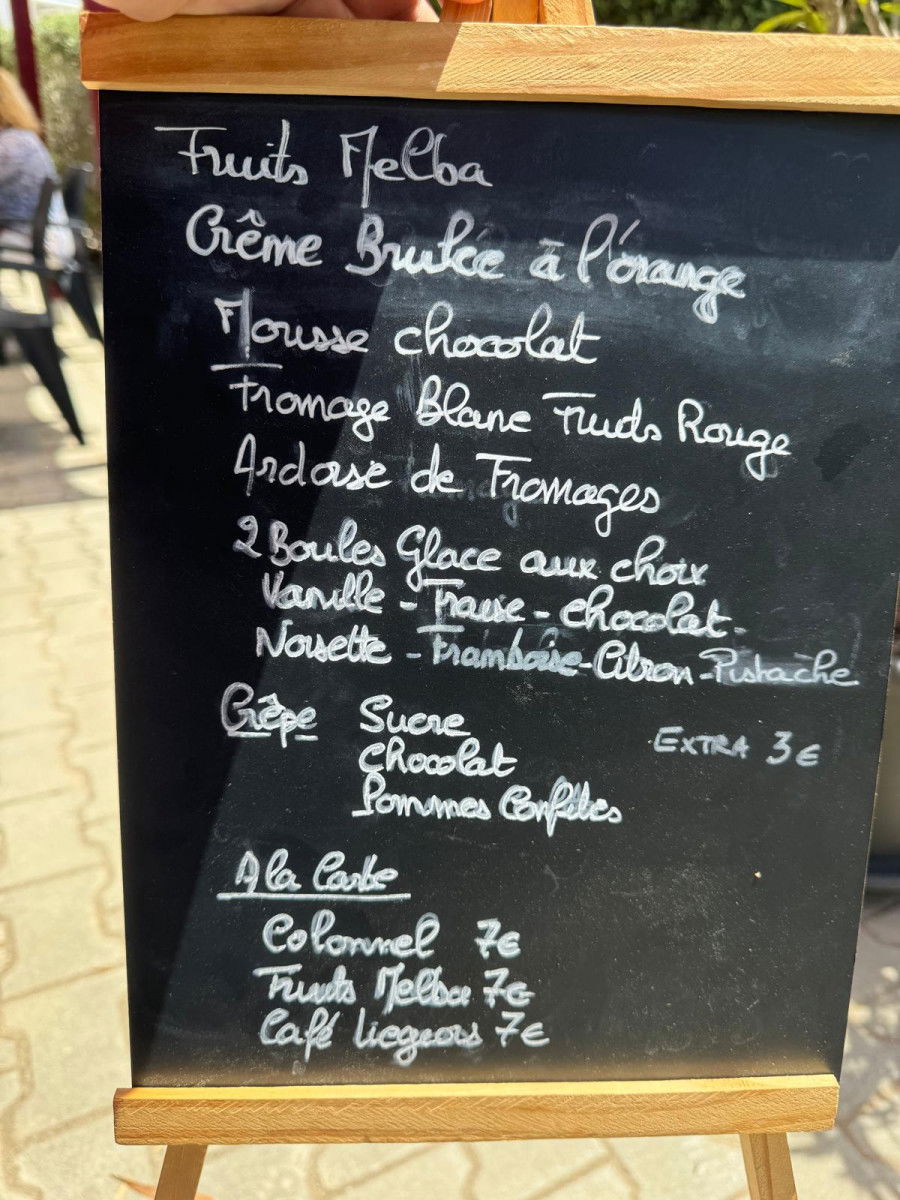 Fruits Melba
Crême Brulée à l'orange
Mousse chocolat
Fromage Blanc Fruits Rouge
Ardoise de Fromages
2 Boules Glace aux choix
Vanille - Fraise - Chocolat -
Noisette - Framboise - Citron - Pistache
Crêpe Sucre
Chocolat EXTRA 3€
Pommes Confites
A la Carte
Colonnel 7€
Fruits Melba 7€
Café Liegeois 7€